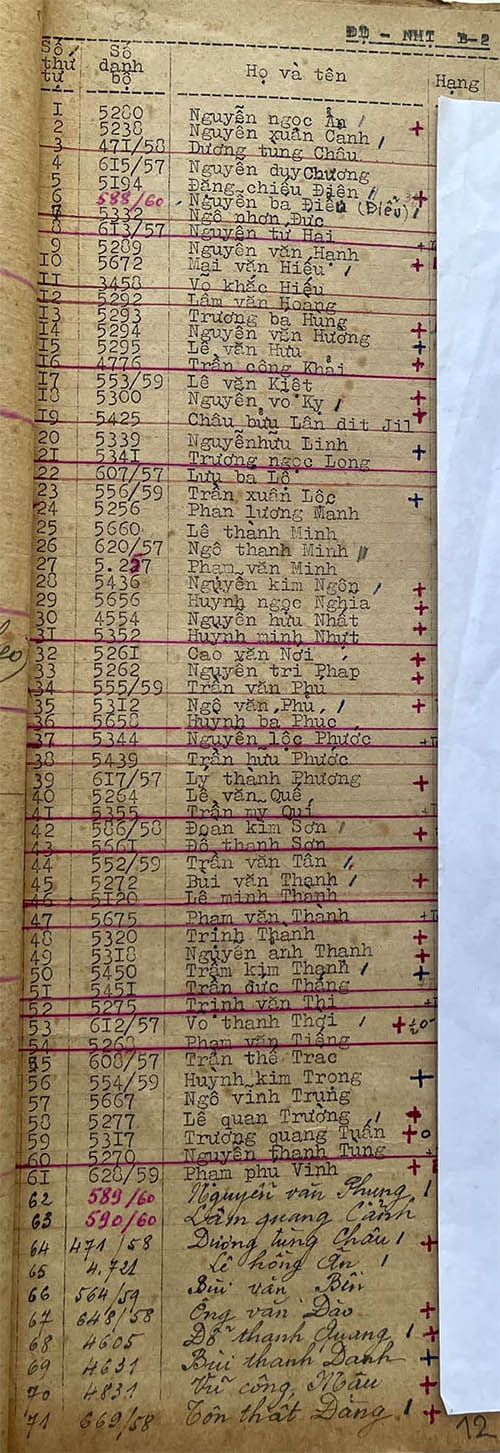 ĐỘ - NHỊ B-2
Số thứ tự Số danh bộ Họ và tên Hạng
1 5280 Nguyễn ngọc Ẩn
2 5238 Nguyễn xuân Cảnh
3 471/58 Dương tùng Châu
4 615/57 Nguyễn duy Chương
5 5194 Đặng chiếu Điện
6 588/60 Nguyễn ba Điểu (Điểu)
7 5332 Ngô nhơn Đức
8 613/57 Nguyễn tư Hai
9 5289 Nguyễn văn Hạnh
10 5672 Mai văn Hiếu
11 3458 Võ khắc Hiếu
12 5292 Lâm văn Hoàng
13 5293 Trương bá Hùng
14 5294 Nguyễn văn Hường
15 5295 Lê văn Hưu
16 4776 Trần công Khải
17 553/59 Lê văn Kiệt
18 5300 Nguyễn vo Kỵ
19 5425 Châu bửu Lân dit Jil
20 5339 Nguyễnhữu Linh
21 5341 Trương ngọc Long
22 607/57 Lưu ba Lộ
23 556/59 Trần xuân Lộc
24 5256 Phan lương Mạnh
25 5660 Lê thành Minh
26 620/57 Ngô thanh Minh
27 5.227 Phạm văn Minh
28 5436 Nguyễn kim Ngôn
29 5656 Huỳnh ngọc Nghia
30 4554 Nguyễn hữu Nhất
31 5352 Huỳnh minh Nhựt
32 5261 Cao văn Nơi
33 5262 Nguyễn tri Phap
34 555/59 Trần văn Phú
35 5312 Ngô văn Phú
36 5658 Huỳnh ba Phuc
37 5344 Nguyễn lộc Phước
38 5439 Trần hữu Phước
39 617/57 Lý thành Phương
40 5264 Lê văn Quế
41 5355 Trần my Qui
42 586/58 Đoàn kim Sơn
43 5661 Đỗ thanh Sơn
44 552/59 Trần văn Tân
45 5272 Bùi văn Thanh
46 5120 Lê minh Thành
47 5675 Phạm văn Thành
48 5320 Trịnh Thanh
49 5318 Nguyễn anh Thanh
50 5450 Trầm kim Thanh
51 5451 Trần đức Thắng
52 5275 Trịnh văn Thi
53 612/57 Vo thanh Thơi
54 5268 Phạm văn Tiếng
55 608/57 Trần thế Trac
56 554/59 Huỳnh kim Trong
57 5667 Ngô vinh Trung
58 5277 Lê quan Trương
59 5317 Trương quang Tuấn
60 5270 Nguyễn thanh Tung
61 628/59 Phạm phu Vinh
62 589/60 Nguyễn văn Phụng
63 590/60 Lâm quang Cảnh
64 471/58 Dương tùng Châu
65 4.721 Lê hồng Ân
66 564/59 Bùi văn Bền
67 648/58 Ông văn Đào
68 4605 Đỗ thanh Quang
69 4631 Bùi thanh Danh
70 4831 Vũ công Mậu
71 669/58 Tôn thất Đàng
12